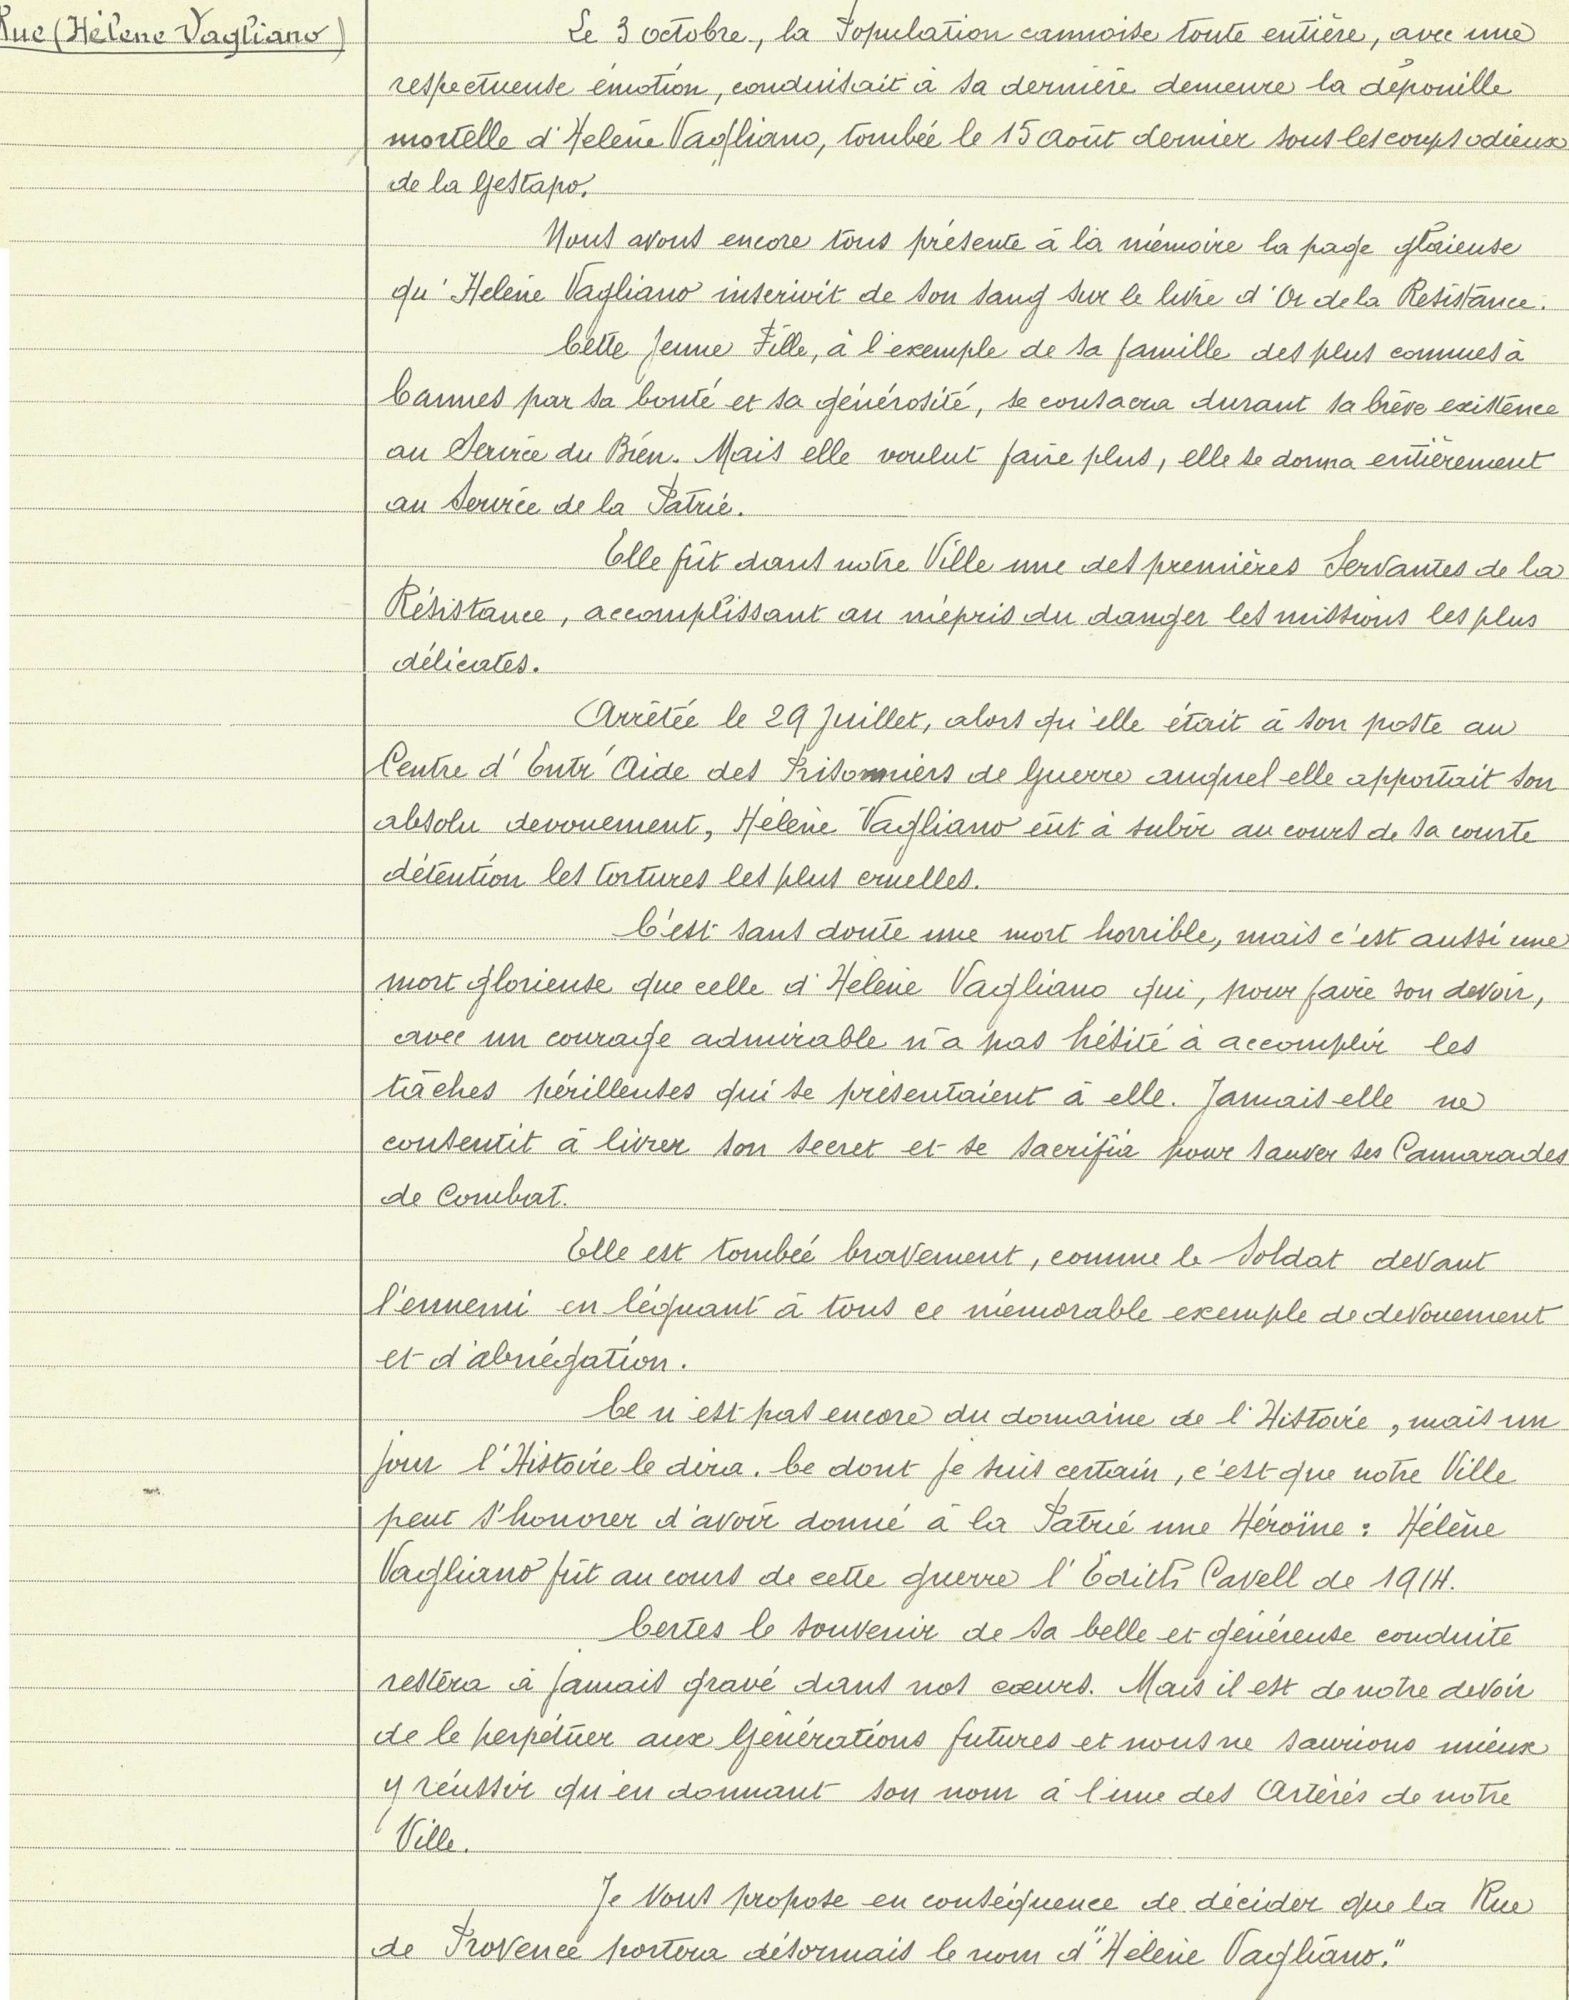 Rue (Hélène Vagliano)
Le 3 octobre, la Population cannoise toute entière, avec une
respectueuse émotion, conduisait à sa dernière demeure la dépouille
mortelle d'Hélène Vagliano, tombée le 15 Août dernier sous les coups odieux
de la Gestapo.
Nous avons encore tous présente à la mémoire la page glorieuse
qu'Hélène Vagliano inscrivit de son sang sur le livre d'Or de la Résistance.
Cette Jeune Fille, à l'exemple de sa famille des plus connues à
Cannes par sa bonté et sa générosité, se consacra durant sa brève existence
au Service du Bien. Mais elle voulut faire plus, elle se donna entièrement
au Service de la Patrie.
Elle fût dans notre Ville une des premières Servantes de la
Résistance, accomplissant au mépris du danger les missions les plus
délicates.
Arrêtée le 29 Juillet, alors qu'elle était à son poste au
Centre d'Entr'Aide des Prisonniers de Guerre auquel elle apportait son
absolu devouement, Hélène Vagliano eût à subir au cours de sa courte
détention les tortures les plus cruelles.
C'est sans doute une mort horrible, mais c'est aussi une
mort glorieuse que celle d'Hélène Vagliano qui, pour faire son devoir,
avec un courage admirable n'a pas hésité à accomplir les
tâches périlleuses qui se présentaient à elle. Jamais elle ne
consentit à livrer son secret et se sacrifia pour sauver ses Camarades
de Combat.
Elle est tombée bravement, comme le Soldat devant
l'ennemi en léguant à tous ce mémorable exemple de devouement
et d'abnégation.
Ce n'est pas encore du domaine de l'Histoire, mais un
jour l'Histoire le dira. Ce dont je suis certain, c'est que notre Ville
peut s'honorer d'avoir donné à la Patrie une Héroïne : Hélène
Vagliano fût au cours de cette guerre l'Edith Cavell de 1914.
Certes le souvenir de sa belle et généreuse conduite
restera à jamais gravé dans nos cœurs. Mais il est de notre devoir
de le perpétuer aux Générations futures et nous ne saurions mieux
y réussir qu'en donnant son nom à l'une des Artères de notre
Ville.
Je Vous propose en conséquence de décider que la Rue
de Provence portera désormais le nom d'"Hélène Vagliano."